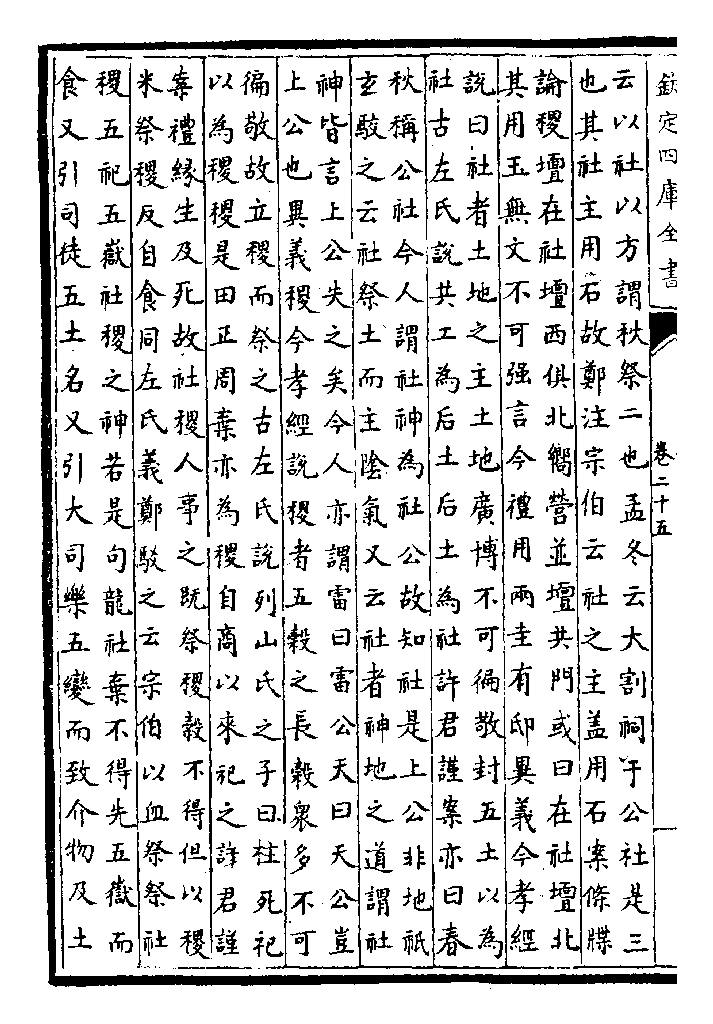 欽定四庫全書
卷二十五
云以社以方謂秋祭二也孟冬云大割祠于公社是三
也其社主用石故鄭注宗伯云社之主盖用石案條牒
論稷壇在社壇西俱北嚮營並壇共門或曰在社壇北
其用玉無文不可强言今禮用兩圭有邸異義今孝經
說曰社者土地之主土地廣博不可徧敬封五土以為
社古左氏說共工為后土后土為社許君謹案亦曰春
秋稱公社今人謂社神為社公故知社是上公非地祇
玄駁之云社祭土而主陰氣又云社者神地之道謂社
神皆言上公失之矣今人亦謂雷曰雷公天曰天公豈
上公也異義稷今孝經說稷者五穀之長穀衆多不可
徧敬故立稷而祭之古左氏說列山氏之子曰柱死祀
以為稷稷是田正周棄亦為稷自商以來祀之許君謹
案禮緣生及死故社稷人事之既祭稷穀不得但以稷
米祭稷反自食同左氏義鄭駁之云宗伯以血祭祭社
稷五祀五嶽社稷之神若是句龍社棄不得先五嶽而
食又引司徒五土名又引大司樂五變而致介物及土